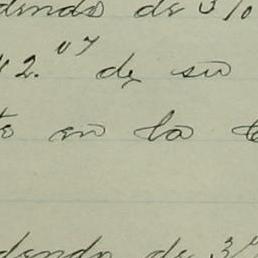 dendo de 3%
2.07 de su
en la
dendo de 3%